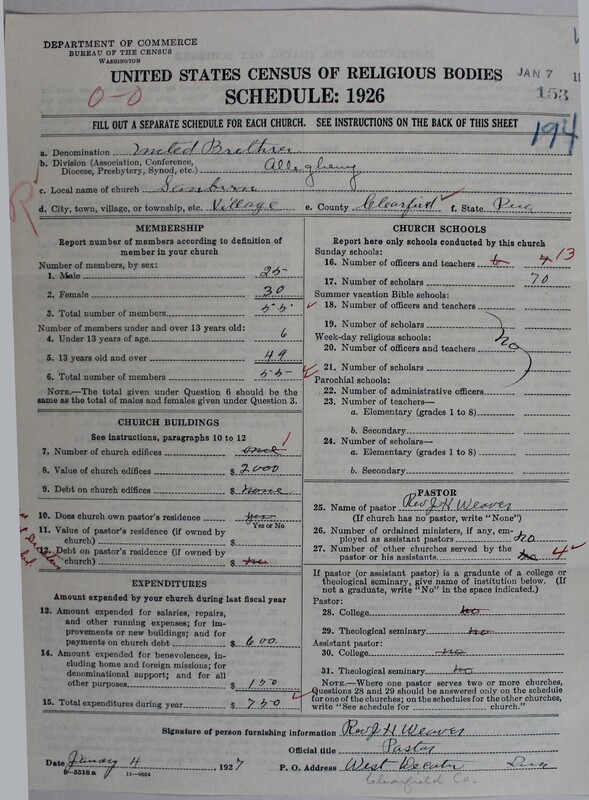 DEPARTMENT OF COMMERCE
BUREAU OF THE CENSUS
WASHINGTON
UNITED STATES CENSUS OF RELIGIOUS BODIES
JAN 7
153
0-0
SCHEDULE: 1926
FILL OUT A SEPARATE SCHEDULE FOR EACH CHURCH. SEE INSTRUCTIONS ON THE BACK OF THIS SHEET
194
a. Denomination United Brethren
b. Division (Association, Conference, Diocese, Presbytery, Synod, etc.) Allegheny
c. Local name of church Sanborn
d. City, town, village, or township, etc. Village e. County Clearfield f. State Penna
MEMBERSHIP
Report number of members according to definition of
member in your church
Number of members, by sex:
1. Male 25
2. Female 30
3. Total number of members 55
Number of members under and over 13 years old:
4. Under 13 years of age 6
5. 13 years old and over 49
6. Total number of members 55
NOTE.—The total given under Question 6 should be the
same as the total of males and females given under Question 3.
CHURCH BUILDINGS
See instructions, paragraphs 10 to 12
7. Number of church edifices one 1
8. Value of church edifices $ 2000
9. Debt on church edifices $ none
10. Does church own pastor's residence yes
Yes or No
11. Value of pastor's residence (if owned by
church) $
12. Debt on pastor's residence (if owned by
church) $ no
EXPENDITURES
Amount expended by your church during last fiscal year
13. Amount expended for salaries, repairs,
and other running expenses; for im-
provements or new buildings; and for
payments on church debt $ 600
14. Amount expended for benevolences, in-
cluding home and foreign missions; for
denominational support; and for all
other purposes $ 150
15. Total expenditures during year $ 750
CHURCH SCHOOLS
Report here only schools conducted by this church
Sunday schools:
16. Number of officers and teachers 6 4 13
17. Number of scholars 70
Summer vacation Bible schools:
18. Number of officers and teachers
19. Number of scholars
no
Week-day religious schools:
20. Number of officers and teachers
21. Number of scholars
Parochial schools:
22. Number of administrative officers
23. Number of teachers—
a. Elementary (grades 1 to 8)
b. Secondary
24. Number of scholars—
a. Elementary (grades 1 to 8)
b. Secondary
PASTOR
25. Name of pastor Rev J H Weaver
(If church has no pastor, write "None")
26. Number of ordained ministers, if any, em-
ployed as assistant pastors no
27. Number of other churches served by the
pastor or his assistants no 4
If pastor (or assistant pastor) is a graduate of a college or
theological seminary, give name of institution below. (If
not a graduate, write "No" in the space indicated.)
Pastor:
28. College no
29. Theological seminary no
Assistant pastor:
30. College no
31. Theological seminary no
NOTE.—Where one pastor serves two or more churches,
Questions 28 and 29 should be answered only on the schedule
for one of the churches; on the schedules for the other churches,
write "See schedule for church."
Signature of person furnishing information Rev J H Weaver
Official title Pastor
Date January 4 1927 P. O. Address West Decatur Penna
8-5518a 11-9084
Clearfield Co.